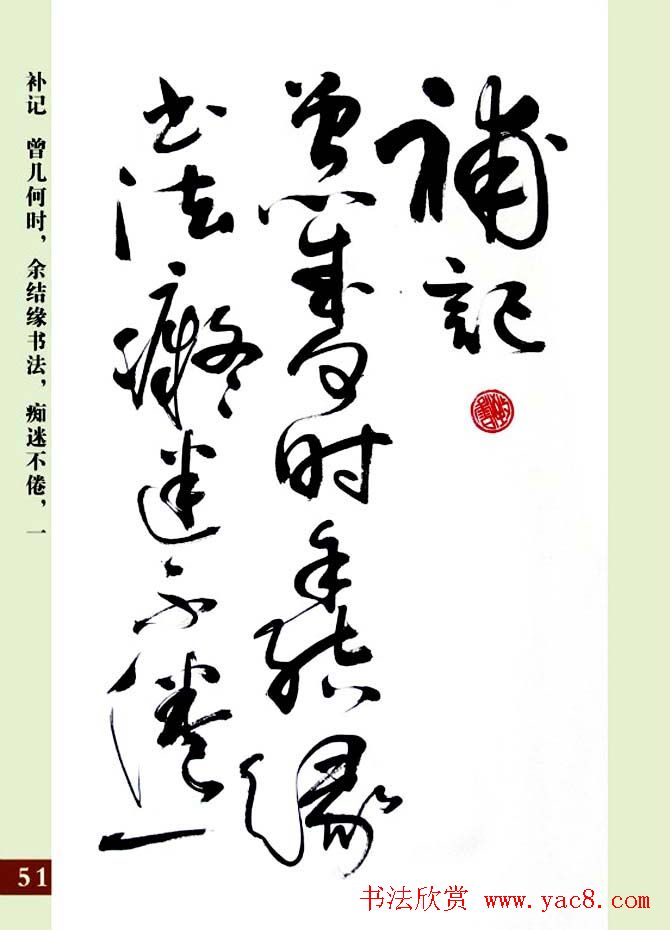 補記
曾幾何时余結緣
书法癡迷不倦一
补记　曾几何时，余结缘书法，痴迷不倦，一
51
书法欣赏 www.yac8.com